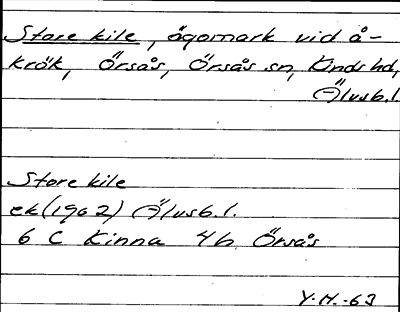 Store kile, ägomark vid å-
krök, Örsås, Örsås sn, Kinds hd,
Älvsb.l.
Store kile
ek(1962) Älvsb.l.
6 C Kinna 4h Örsås
Y.H.-63